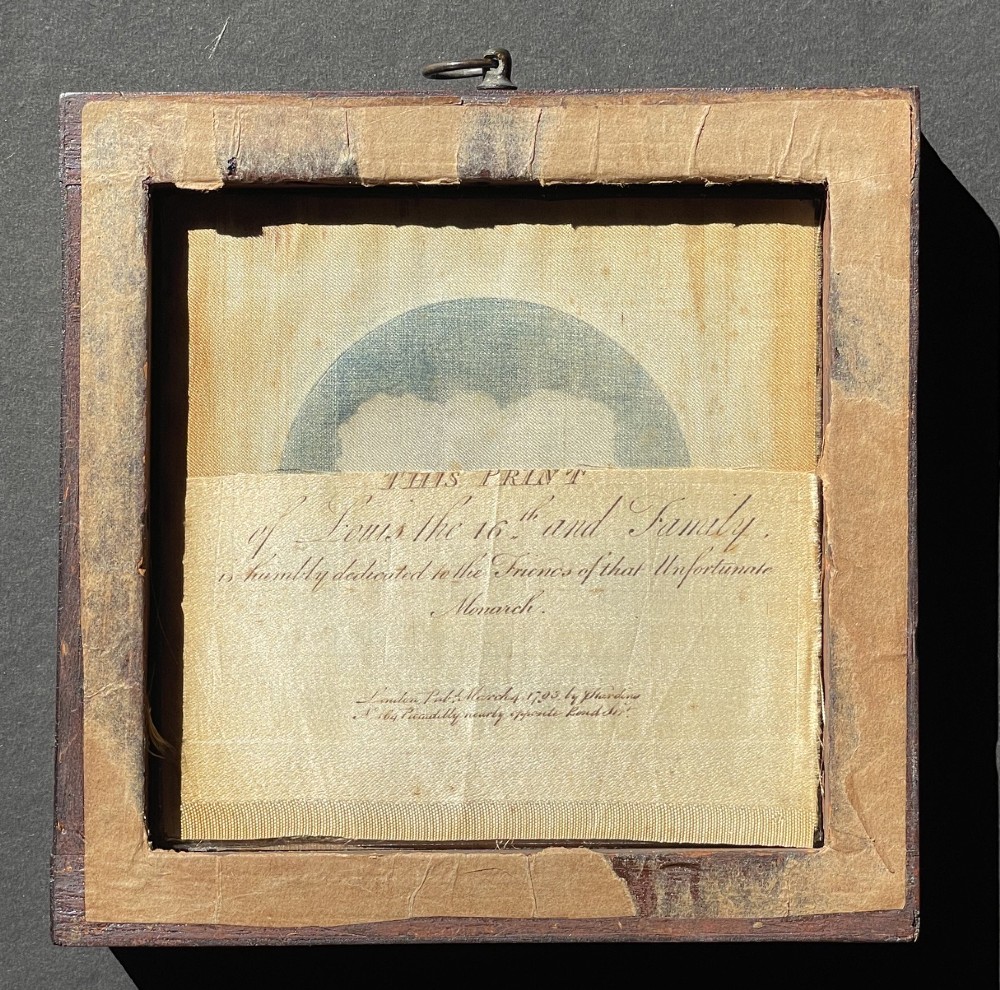 THIS PRINT
of Louis the 16.th and Family.
is humbly dedicated to the Friends of that Unfortunate
Monarch.
London, Pub. March 4, 1793, by
No. 164 Picadilly nearly opposite Bond Str.t